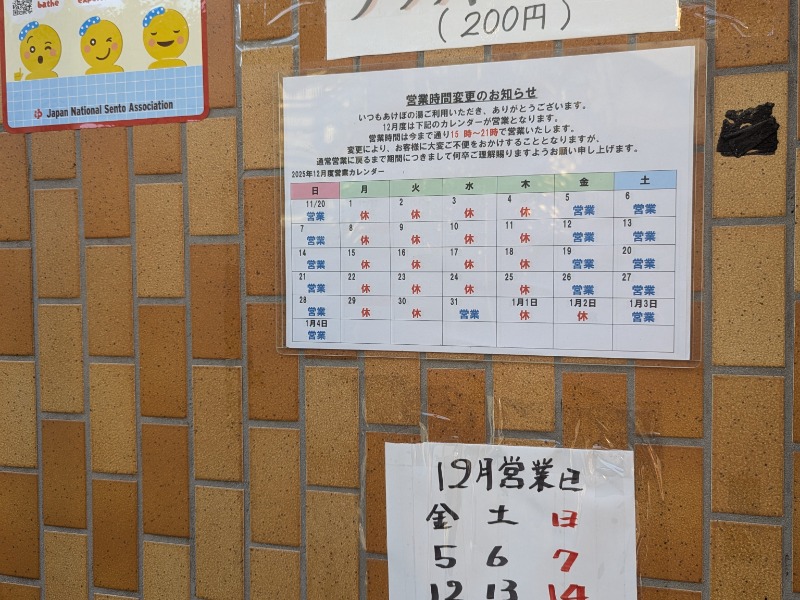 bathe
Japan National Sento Association
(200円)
営業時間変更のお知らせ
いつもあけぼの湯ご利用いただき、ありがとうございます。
12月度は下記のカレンダーが営業となります。
営業時間は今まで通り15 時～21時で営業いたします。
変更により、お客様に大変ご不便をおかけすることとなりますが、
通常営業に戻るまで期間につきまして何卒ご理解賜りますようお願い申し上げます。
2025年12月度営業カレンダー
日 月 火 水 木 金 土
11/20 1 2 3 4 5 6
営業 休 休 休 休 営業 営業
7 8 9 10 11 12 13
営業 休 休 休 休 営業 営業
14 15 16 17 18 19 20
営業 休 休 休 休 営業 営業
21 22 23 24 25 26 27
営業 休 休 休 休 営業 営業
28 29 30 31 1月1日 1月2日 1月3日
営業 休 休 営業 休 休 営業
1月4日
営業
12月営業日
金 土 日
5 6 7
12 13 14